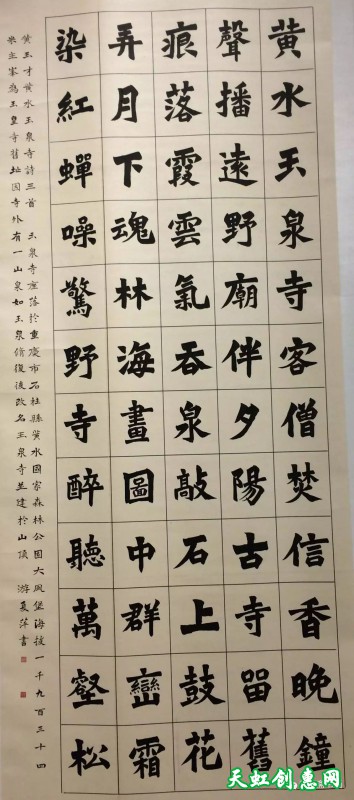 黄水玉泉寺客僧焚信香晚鐘
聲播遠野廟伴夕陽古寺留舊
痕落霞雲氣吞泉敲石上鼓花
弄月下魂林海畫圖中群巒霜
染紅蟬噪驚野寺醉聽萬壑松
黄玉才黄水玉泉寺詩三首 玉泉寺座落於重慶市石柱縣黄水國家森林公園大風堡海拔一千九百三十四
米主峯為玉皇寺舊址因寺外有一山泉如玉泉修復後改名玉泉寺並建於山頂 游夏萍書
天虹创惠网